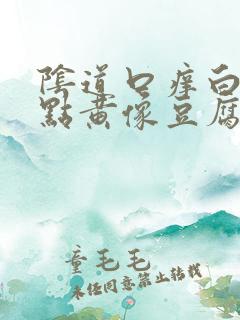 陰道口痒白
點黄像豆腐
童毛毛
未经同意禁止转载